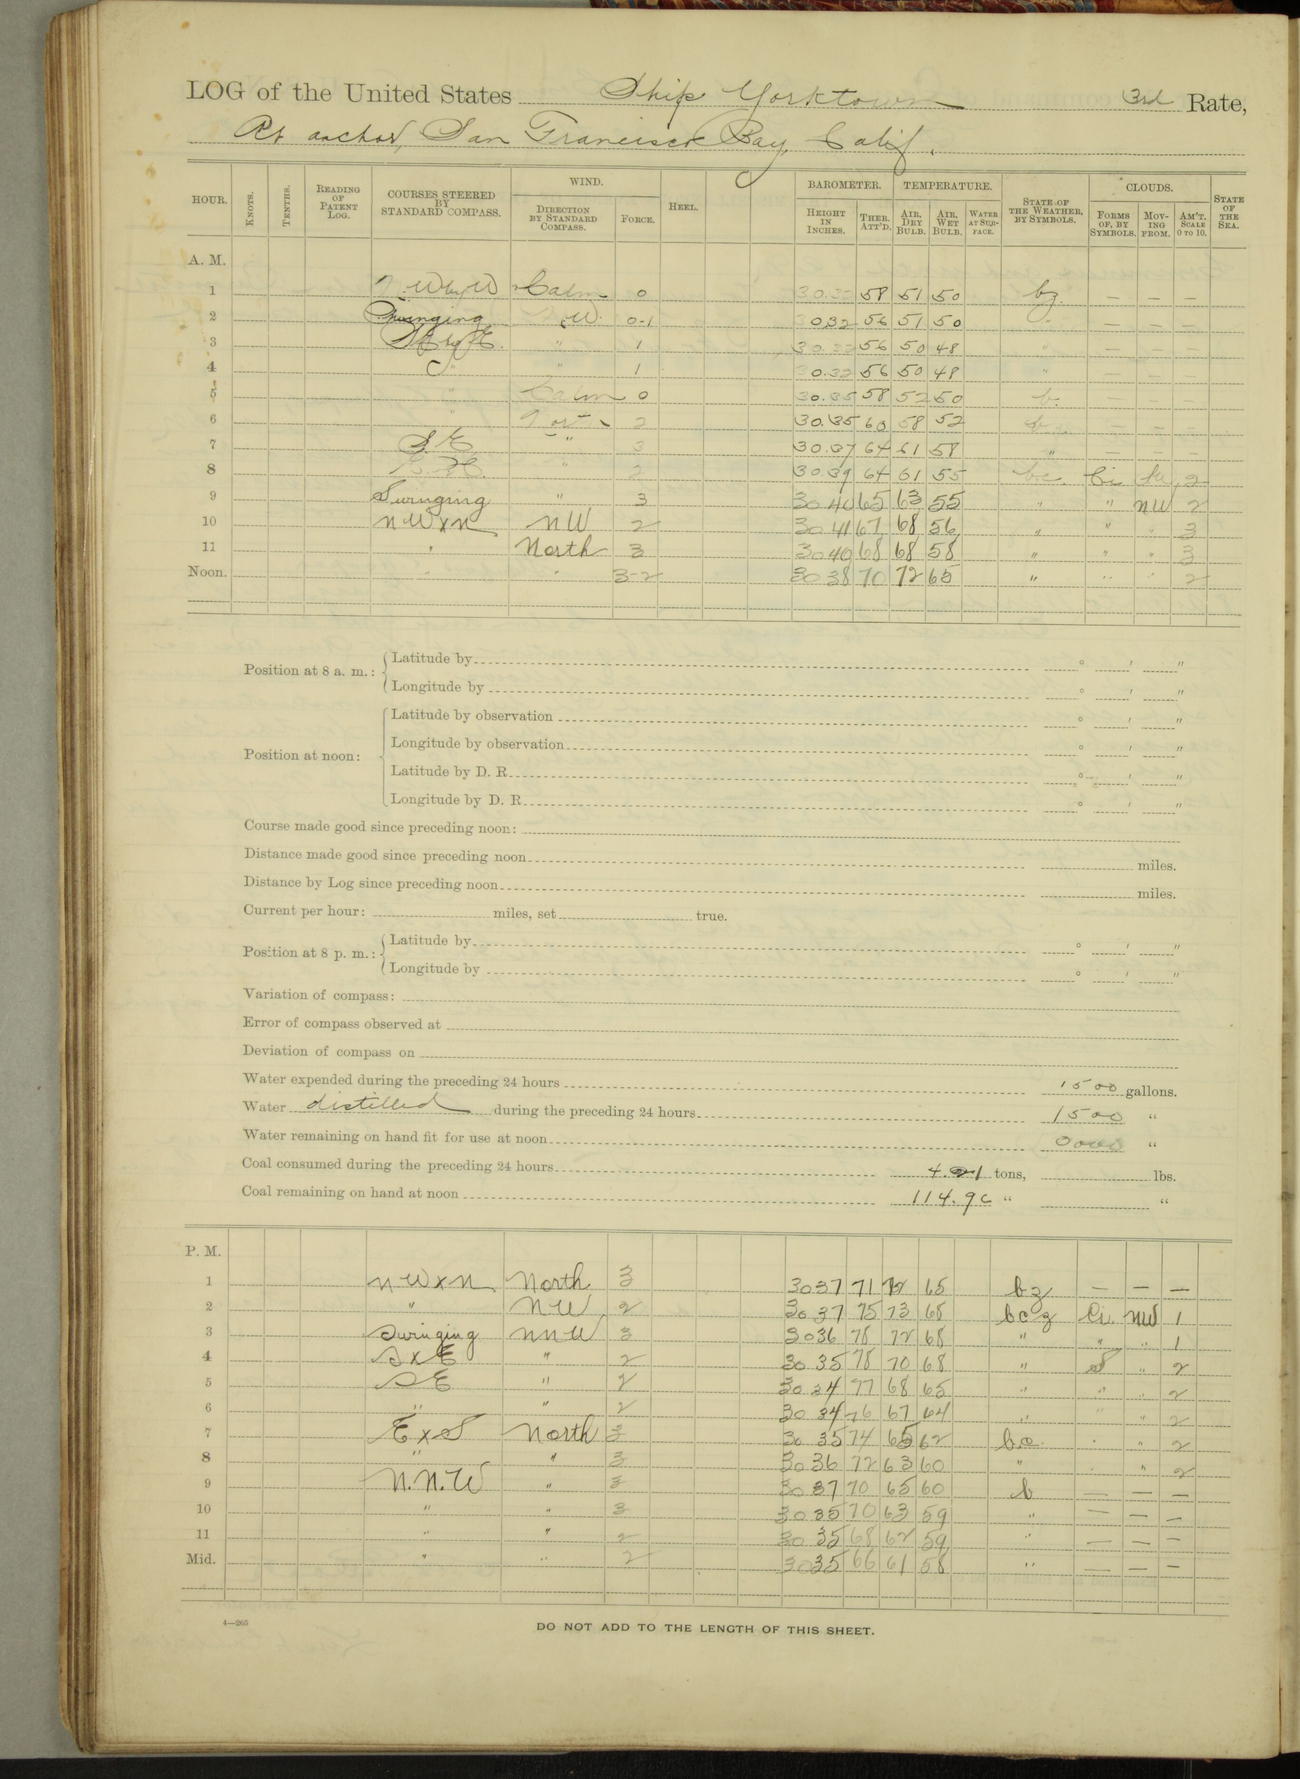 LOG of the United States Ship Yorktown 3rd Rate,
At anchor, San Francisco Bay, Calif.
HOUR. KNOTS. TENTHS. READING OF PATENT LOG. COURSES STEERED BY STANDARD COMPASS. WIND. DIRECTION BY STANDARD COMPASS. FORCE. HEEL. BAROMETER. HEIGHT IN INCHES. THER. ATT'D. TEMPERATURE. AIR, DRY BULB. AIR, WET BULB. WATER AT SURFACE. STATE OF THE WEATHER, BY SYMBOLS. CLOUDS. FORMS OF, BY SYMBOLS. MOVING FROM. AM'T. SCALE 0 TO 10. STATE OF THE SEA.
A. M.
1 N.W by W Calm 0 58 51 50 bz. — — —
2 Swinging W. 0-1 30 32 56 51 50 — — —
3 " 1 30 56 50 48 " — — —
4 " " 1 30.32 56 50 48 " — — —
5 " Calm 0 30.35 58 52 50 b. — — —
6 " 2 30.35 60 58 52 — — —
7 S.E " 3 30.37 64 61 58 "
8 " 2 30.39 64 61 55 bc. Ci 2
9 Swinging " 3 30 40 65 63 55 " " NW 2
10 NWxN NW 2 30 41 67 68 56 " " " 3
11 " North 3 30 40 68 68 58 " " " 3
Noon. " " 3-2 30 38 70 72 65 " " " 2
Position at 8 a. m.: Latitude by ° ′ ″
Longitude by ° ′ ″
Position at noon: Latitude by observation ° ′ ″
Longitude by observation ° ′ ″
Latitude by D. R. ° ′ ″
Longitude by D. R. ° ′ ″
Course made good since preceding noon:
Distance made good since preceding noon miles.
Distance by Log since preceding noon miles.
Current per hour: miles, set true.
Position at 8 p. m.: Latitude by ° ′ ″
Longitude by ° ′ ″
Variation of compass:
Error of compass observed at
Deviation of compass on
Water expended during the preceding 24 hours 1500 gallons.
Water distilled during the preceding 24 hours 1500 "
Water remaining on hand fit for use at noon "
Coal consumed during the preceding 24 hours tons, lbs.
Coal remaining on hand at noon "  "
P. M.
1 NWxN North 3 30 37 71 72 65 bz — — —
2 " NW 2 30 37 75 73 68 bcz Ci. NW 1
3 Swinging NNW 3 30 36 78 72 68 " " " 1
4 SxE " 2 30 35 78 70 68 " S " 2
5 SE " 2 30 34 77 68 65 " " " 2
6 " " 2 30 34 76 67 64 " " " 2
7 ExS North 3 30 35 74 65 62 bc. " " 2
8 " " 3 30 36 72 63 60 " " " 2
9 N.N.W " 3 30 37 70 65 60 b — — —
10 " " 3 30 35 70 63 59 " — — —
11 " " 2 30 35 68 62 59 " — — —
Mid. " " 2 30 35 66 61 58 " — — —
4—265
DO NOT ADD TO THE LENGTH OF THIS SHEET.